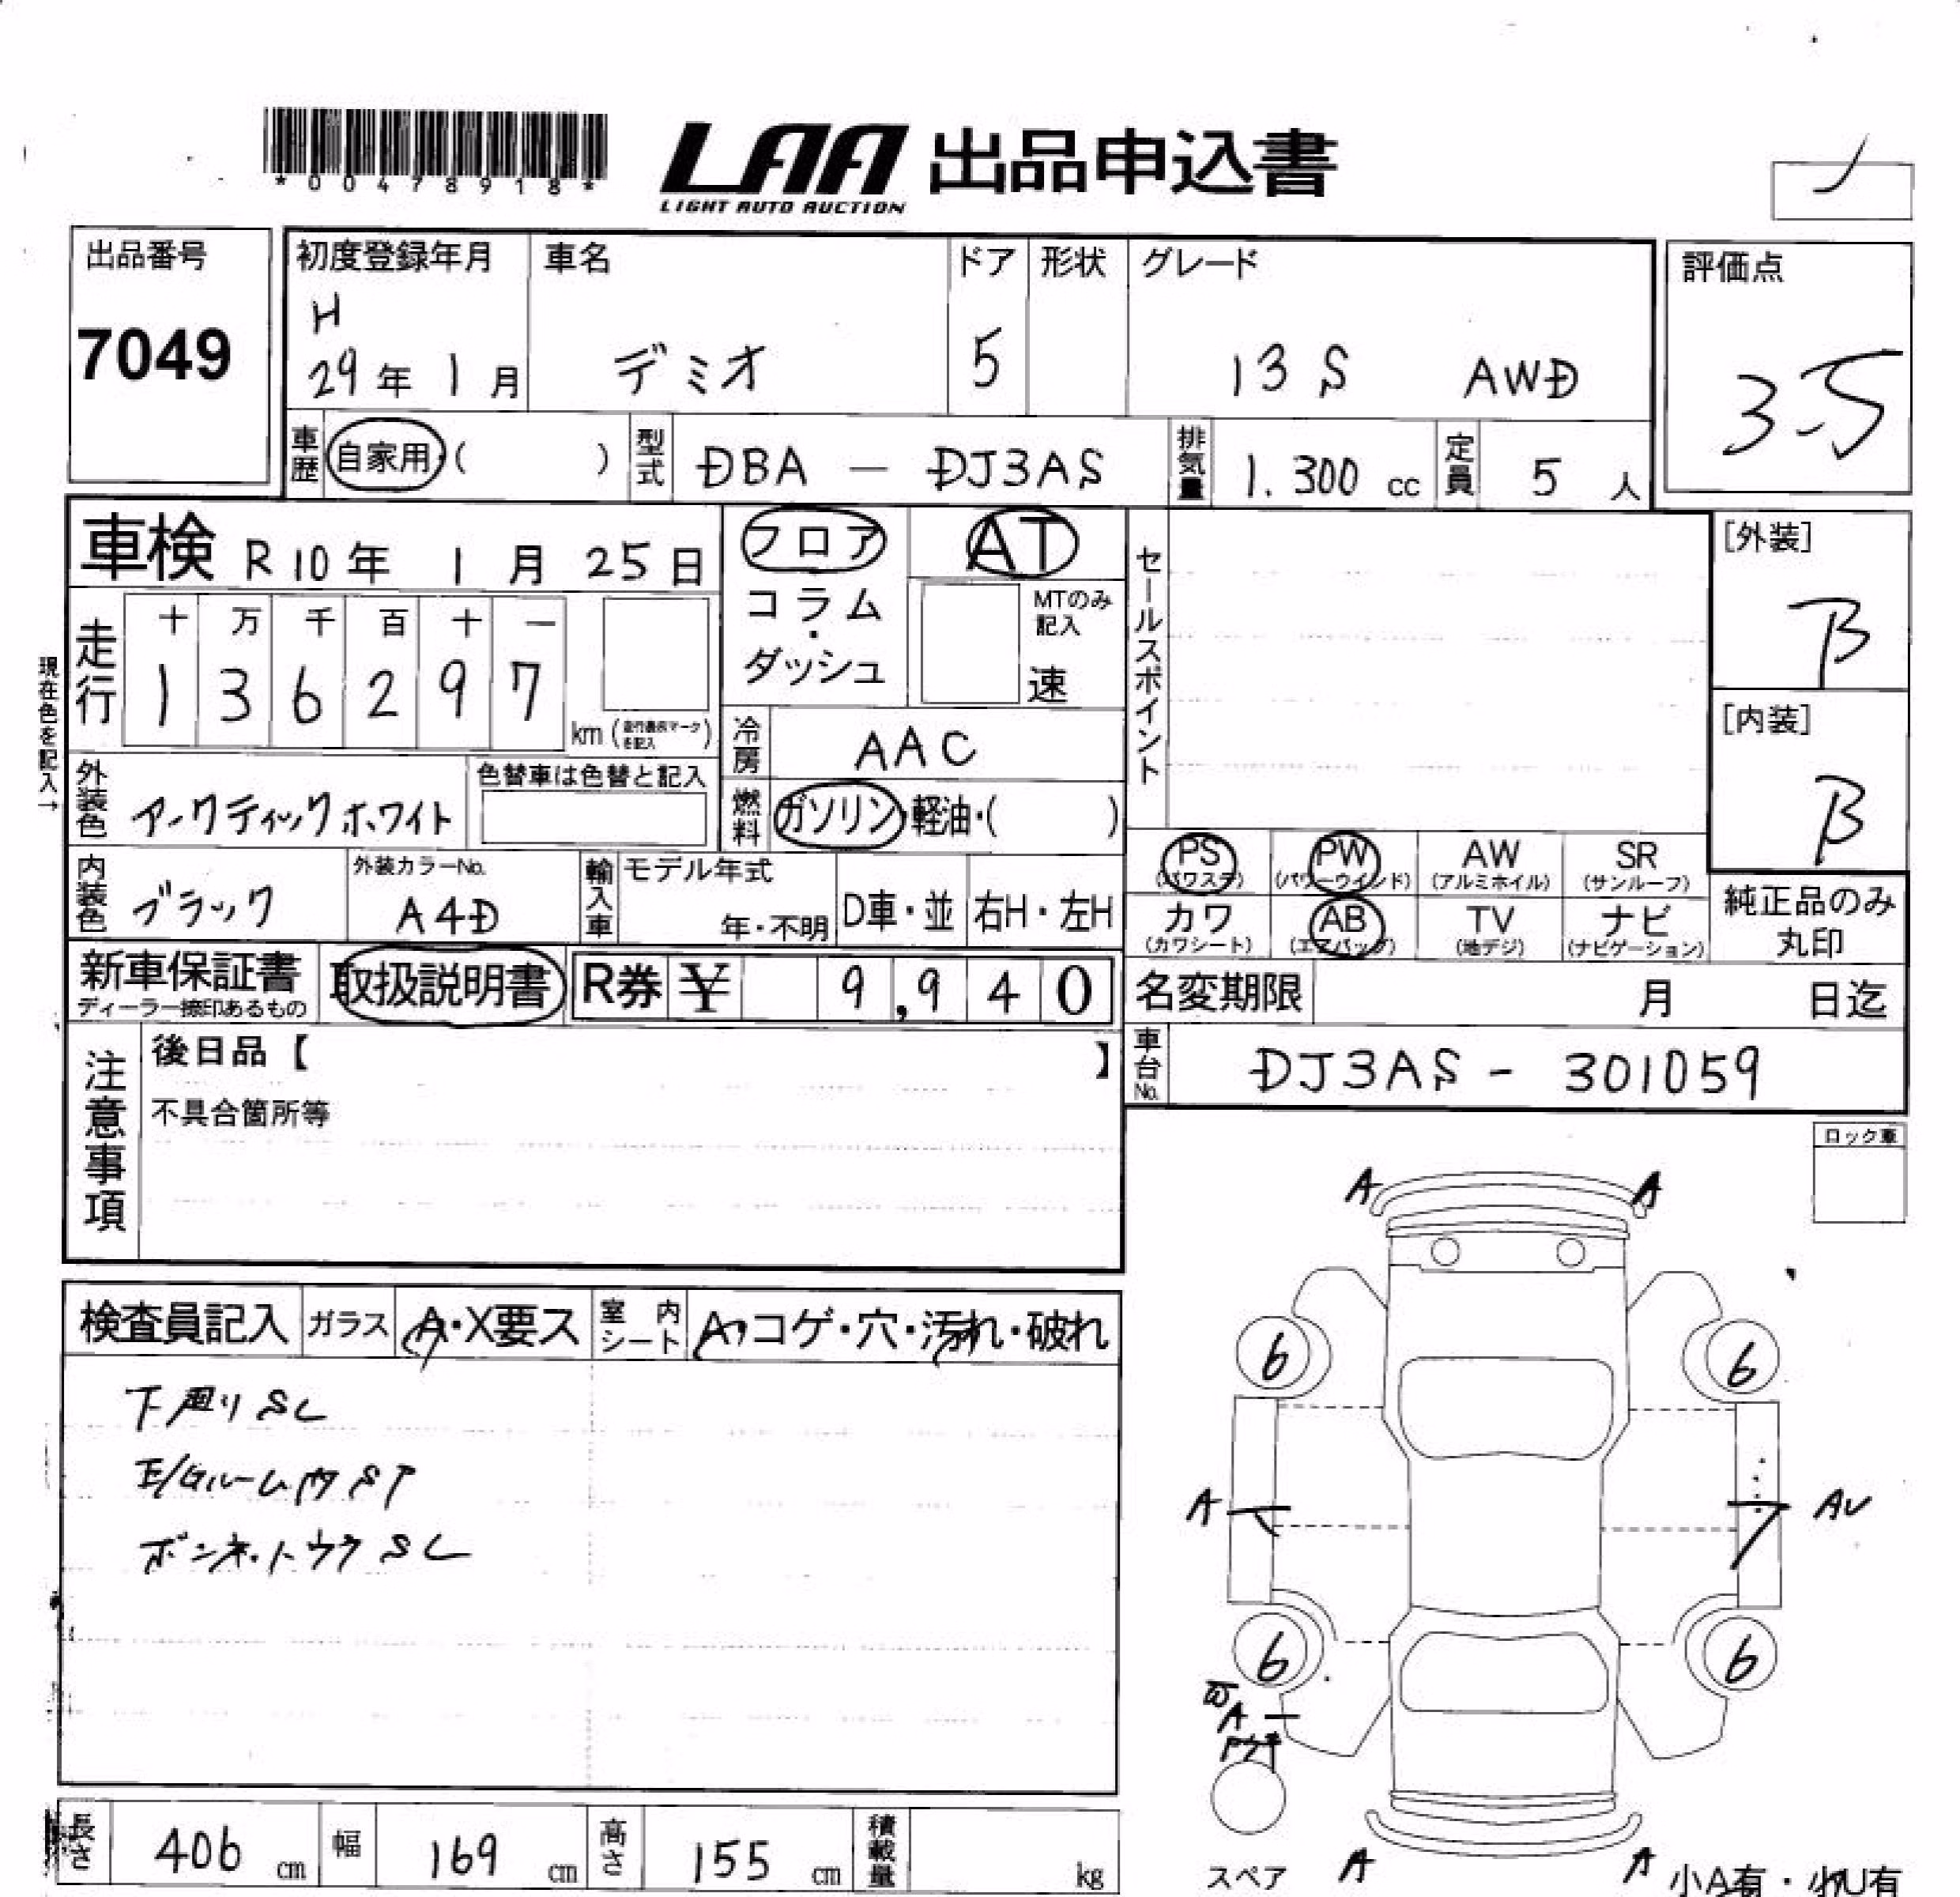 *00478918*
LAA 出品申込書
LIGHT AUTO AUCTION
出品番号
7049
初度登録年月 車名 ドア 形状 グレード
H
29年 1月 デミオ 5 13S AWD
評価点
3.5
車歴 自家用・( ) 型式 DBA - DJ3AS 排気量 1.300 cc 定員 5人
車検 R10年 1月 25日
フロア AT
コラム・ダッシュ
MTのみ記入
速
セールスポイント
[外装]
B
[内装]
B
現在色を記入→
走行 十 万 千 百 十 一
1 3 6 2 9 7
km (走行書表マークを記入)
冷房 AAC
外装色 アークティックホワイト
色替車は色替と記入
燃料 ガソリン・軽油・( )
内装色 ブラック
外装カラーNo.
A4D
輸入車 モデル年式
年・不明 D車・並 右H・左H
PS (パワステ) PW (パワーウインド) AW (アルミホイル) SR (サンルーフ)
カワ (カワシート) AB (エアバッグ) TV (地デジ) ナビ (ナビゲーション)
純正品のみ
丸印
新車保証書
ディーラー捺印あるもの
取扱説明書 R券 ¥ 9,940
名変期限 月 日迄
車台No. DJ3AS - 301059
注意事項
後日品【 】
不具合箇所等
ロック車
検査員記入 ガラス A・X要ス 室内シート A・コゲ・穴・汚れ・破れ
下廻りSL
E/Gルーム内ST
ボンネットウラSL
A A
6 6
A AU
6 6
A
スペア
A A
小A有・小U有
長さ 406 cm 幅 169 cm 高さ 155 cm 積載量 kg